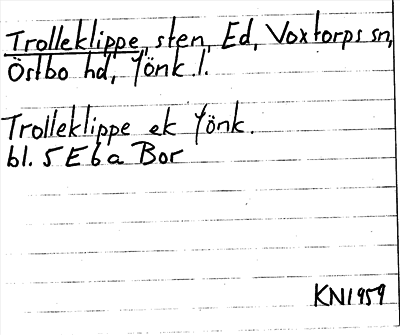 Trolleklippe, sten, Ed, Voxtorps sn,
Östbo hd, Jönk. l.
Trolleklippe ek Jönk.
bl. 5 E 6 a Bor
KN1959